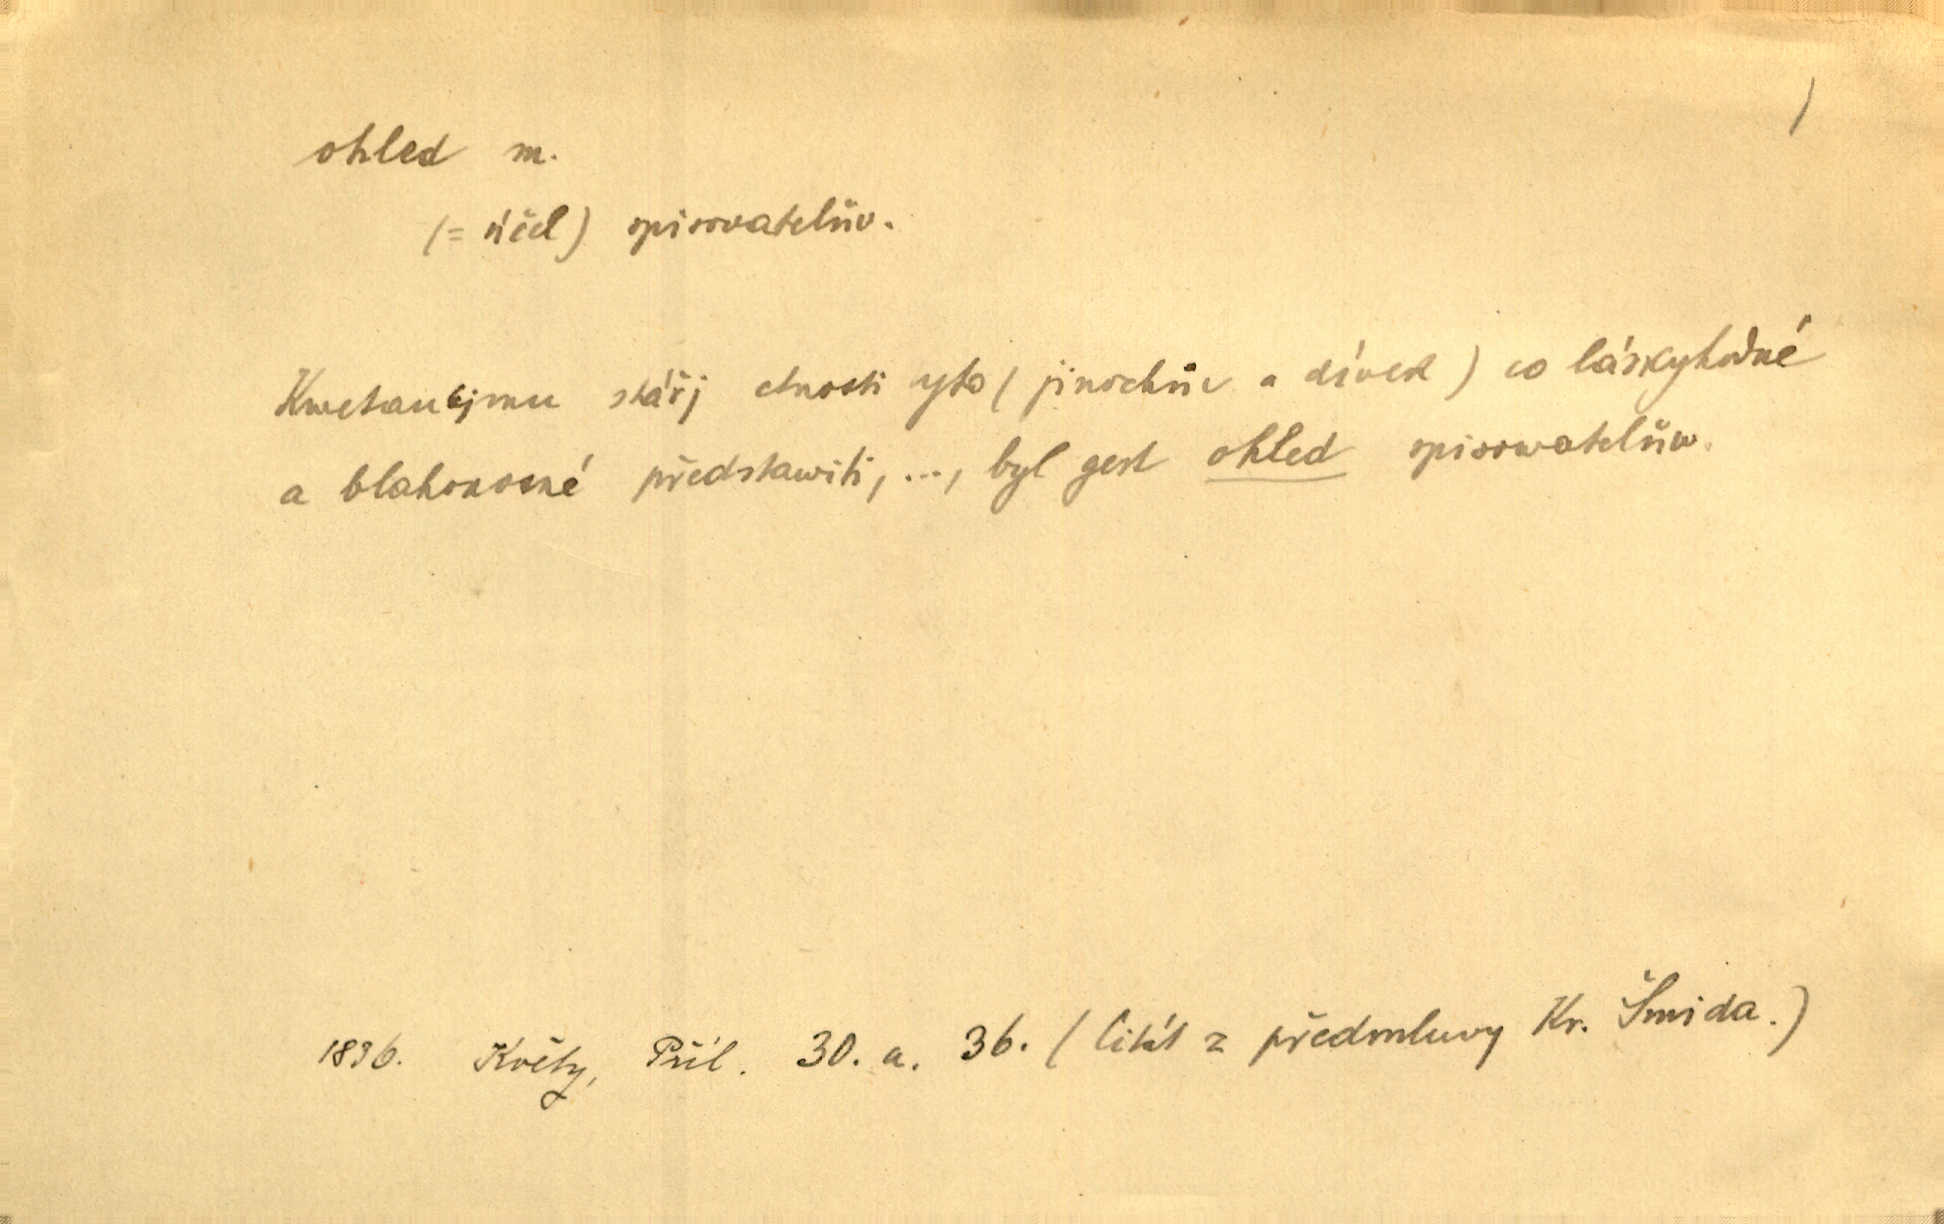 /
ohled m.
(= účel) spisovatelův.
Kwetaucjmu stářj ctnosti tyto ( jinochův a dívek ) co láskyhodné
a blahonosné předstawiti, ..., byl gest ohled spisowatelůw.
1836. Květy, Příl. 30. a. 36. ( Citát z předmluvy Kr. Šmida.)